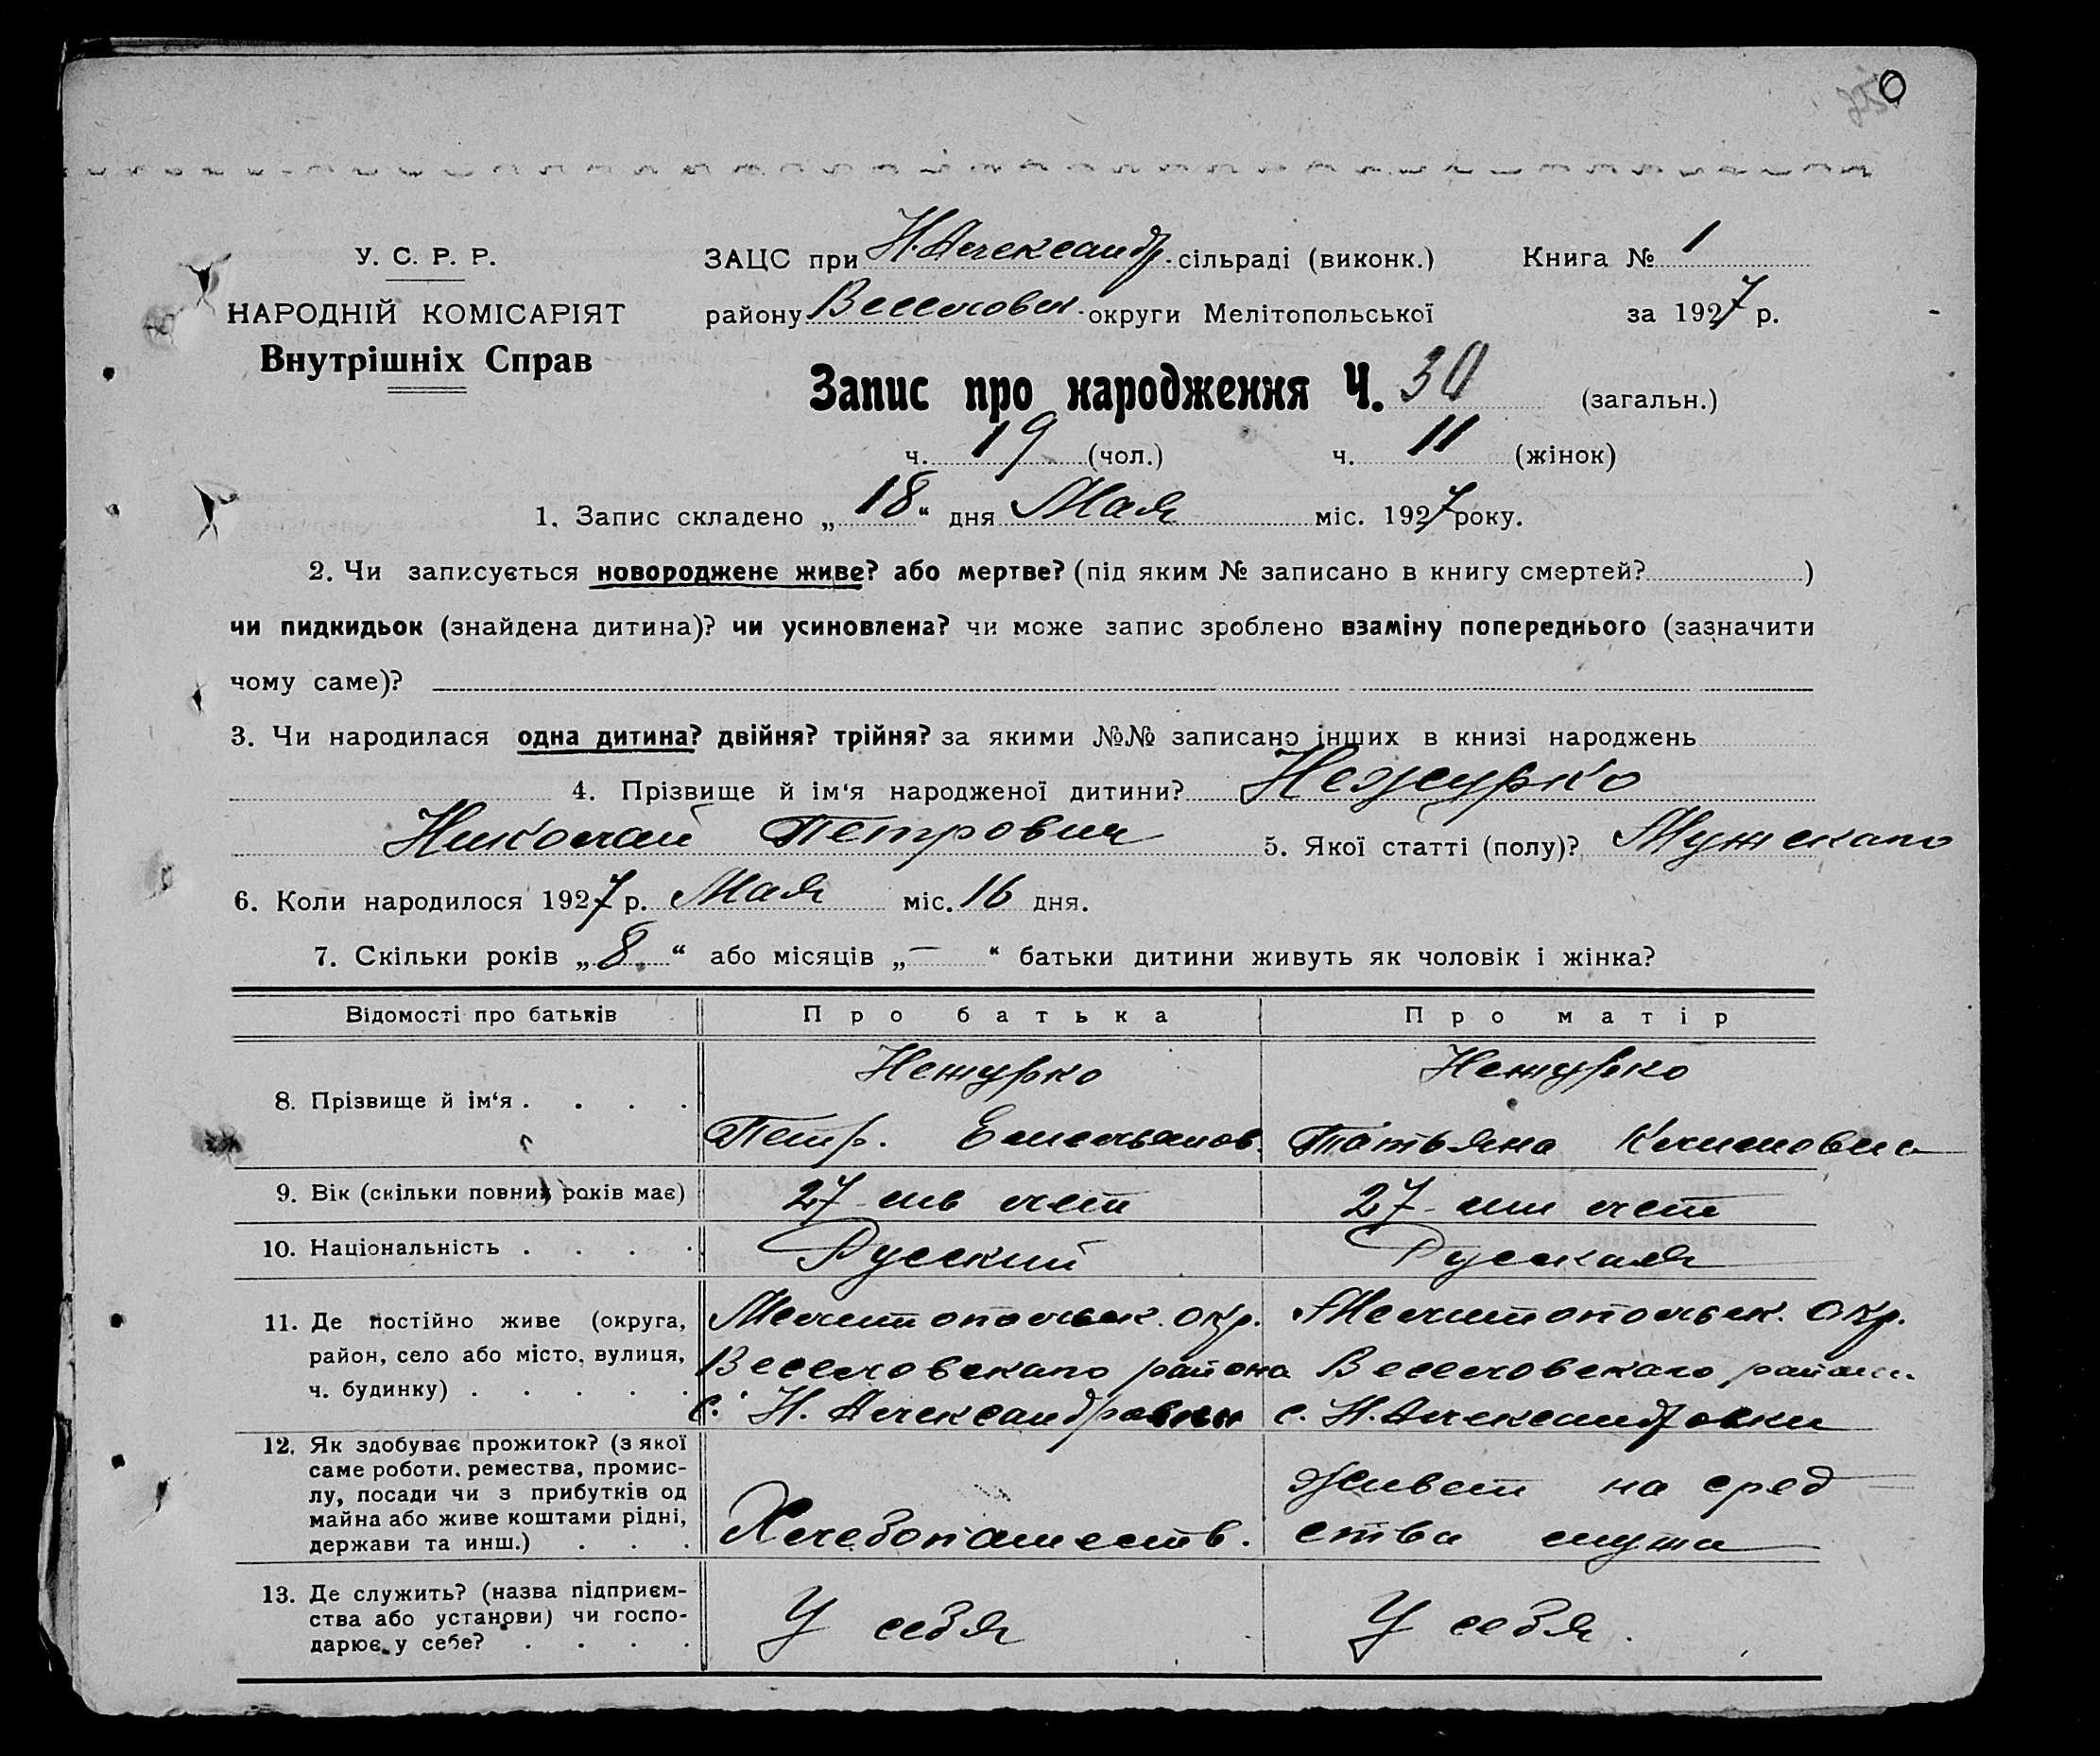 О
У. С. Р. Р.
НАРОДНІЙ КОМІСАРІЯТ
Внутрішніх Справ
ЗАЦС при Н. Александр. сільраді (виконк.) Книга № 1
району Веселовск. округи Мелітопольської за 1927 р.
Запис про народження Ч. 30 (загальн.)
ч. 19 (чол.) ч. 11 (жінок)
1. Запис складено „18“ дня Мая міс. 1927 року.
2. Чи записується новороджене живе? або мертве? (під яким № записано в книгу смертей? )
чи пидкидьок (знайдена дитина)? чи усиновлена? чи може запис зроблено взаміну попереднього (зазначити
чому саме)?
3. Чи народилася одна дитина? двійня? трійня? за якими №№ записано інших в книзі народжень
4. Прізвище й ім‘я народженої дитини? Нежурко
Николай Петрович 5. Якої статті (полу)? Мужскаго
6. Коли народилося 1927 р. Мая міс. 16 дня.
7. Скільки років „8“ або місяців „—“ батьки дитини живуть як чоловік і жінка?
Відомості про батьків Про батька Про матір
8. Прізвище й ім‘я . . . . Нежурко Нежурко
Петр. Емельянов. Татьяна Климовна
9. Вік (скільки повних років має) 27-ми лет 27-ми лет
10. Національність . . . . Русский Руская
11. Де постійно живе (округа, Мелитопольск. окр. Мелитопольск. окр.
район, село або місто, вулиця, Веселовскаго района Веселовскаго район.
ч. будинку) . . . . . с. Н. Александровки с. Н. Александровки
12. Як здобуває прожиток? (з якої
саме роботи. ремества, промис-
лу, посади чи з прибутків од Живет на сред
майна або живе коштами рідні, Хлебопашеств. ства мужа
держави та инш.) . . .
13. Де служить? (назва підприєм-
ства або установи) чи госпо- У себя У себя.
дарює у себе? . . . .